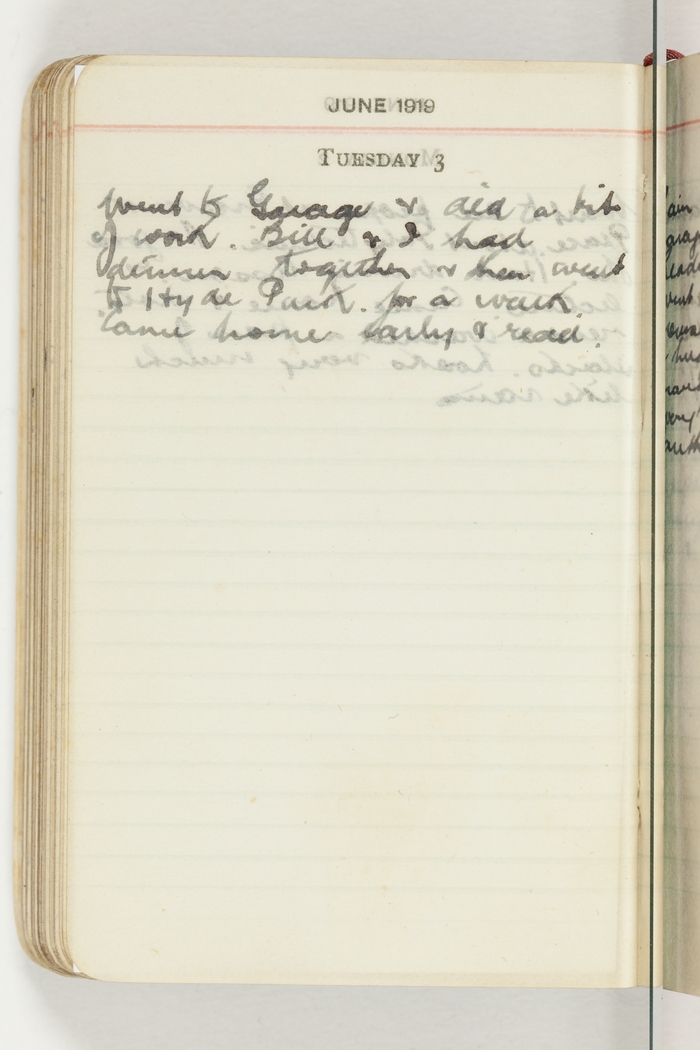 JUNE 1919
TUESDAY 3
Went to Garage & did a bit
of work. Bill & I had
dinner together & then went
to Hyde Park. for a walk.
Came home early & read.